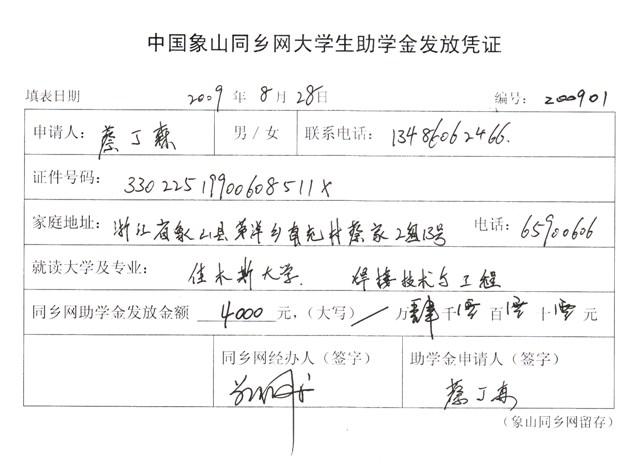 中国象山同乡网大学生助学金发放凭证
填表日期 2009 年 8 月 28 日 编号: 200901
申请人: 蔡丁森 男 / 女 联系电话: 13486062466.
证件号码: 33022519900608511X
家庭地址: 浙江省象山县茅洋乡 村蔡家2组13号 电话: 65900606
就读大学及专业: 佳木斯大学. 焊接技术与工程
同乡网助学金发放金额 4000 元, (大写) / 万 肆 千 零 百 零 十 零 元
同乡网经办人 (签字) 助学金申请人 (签字)
蔡丁森
(象山同乡网留存)